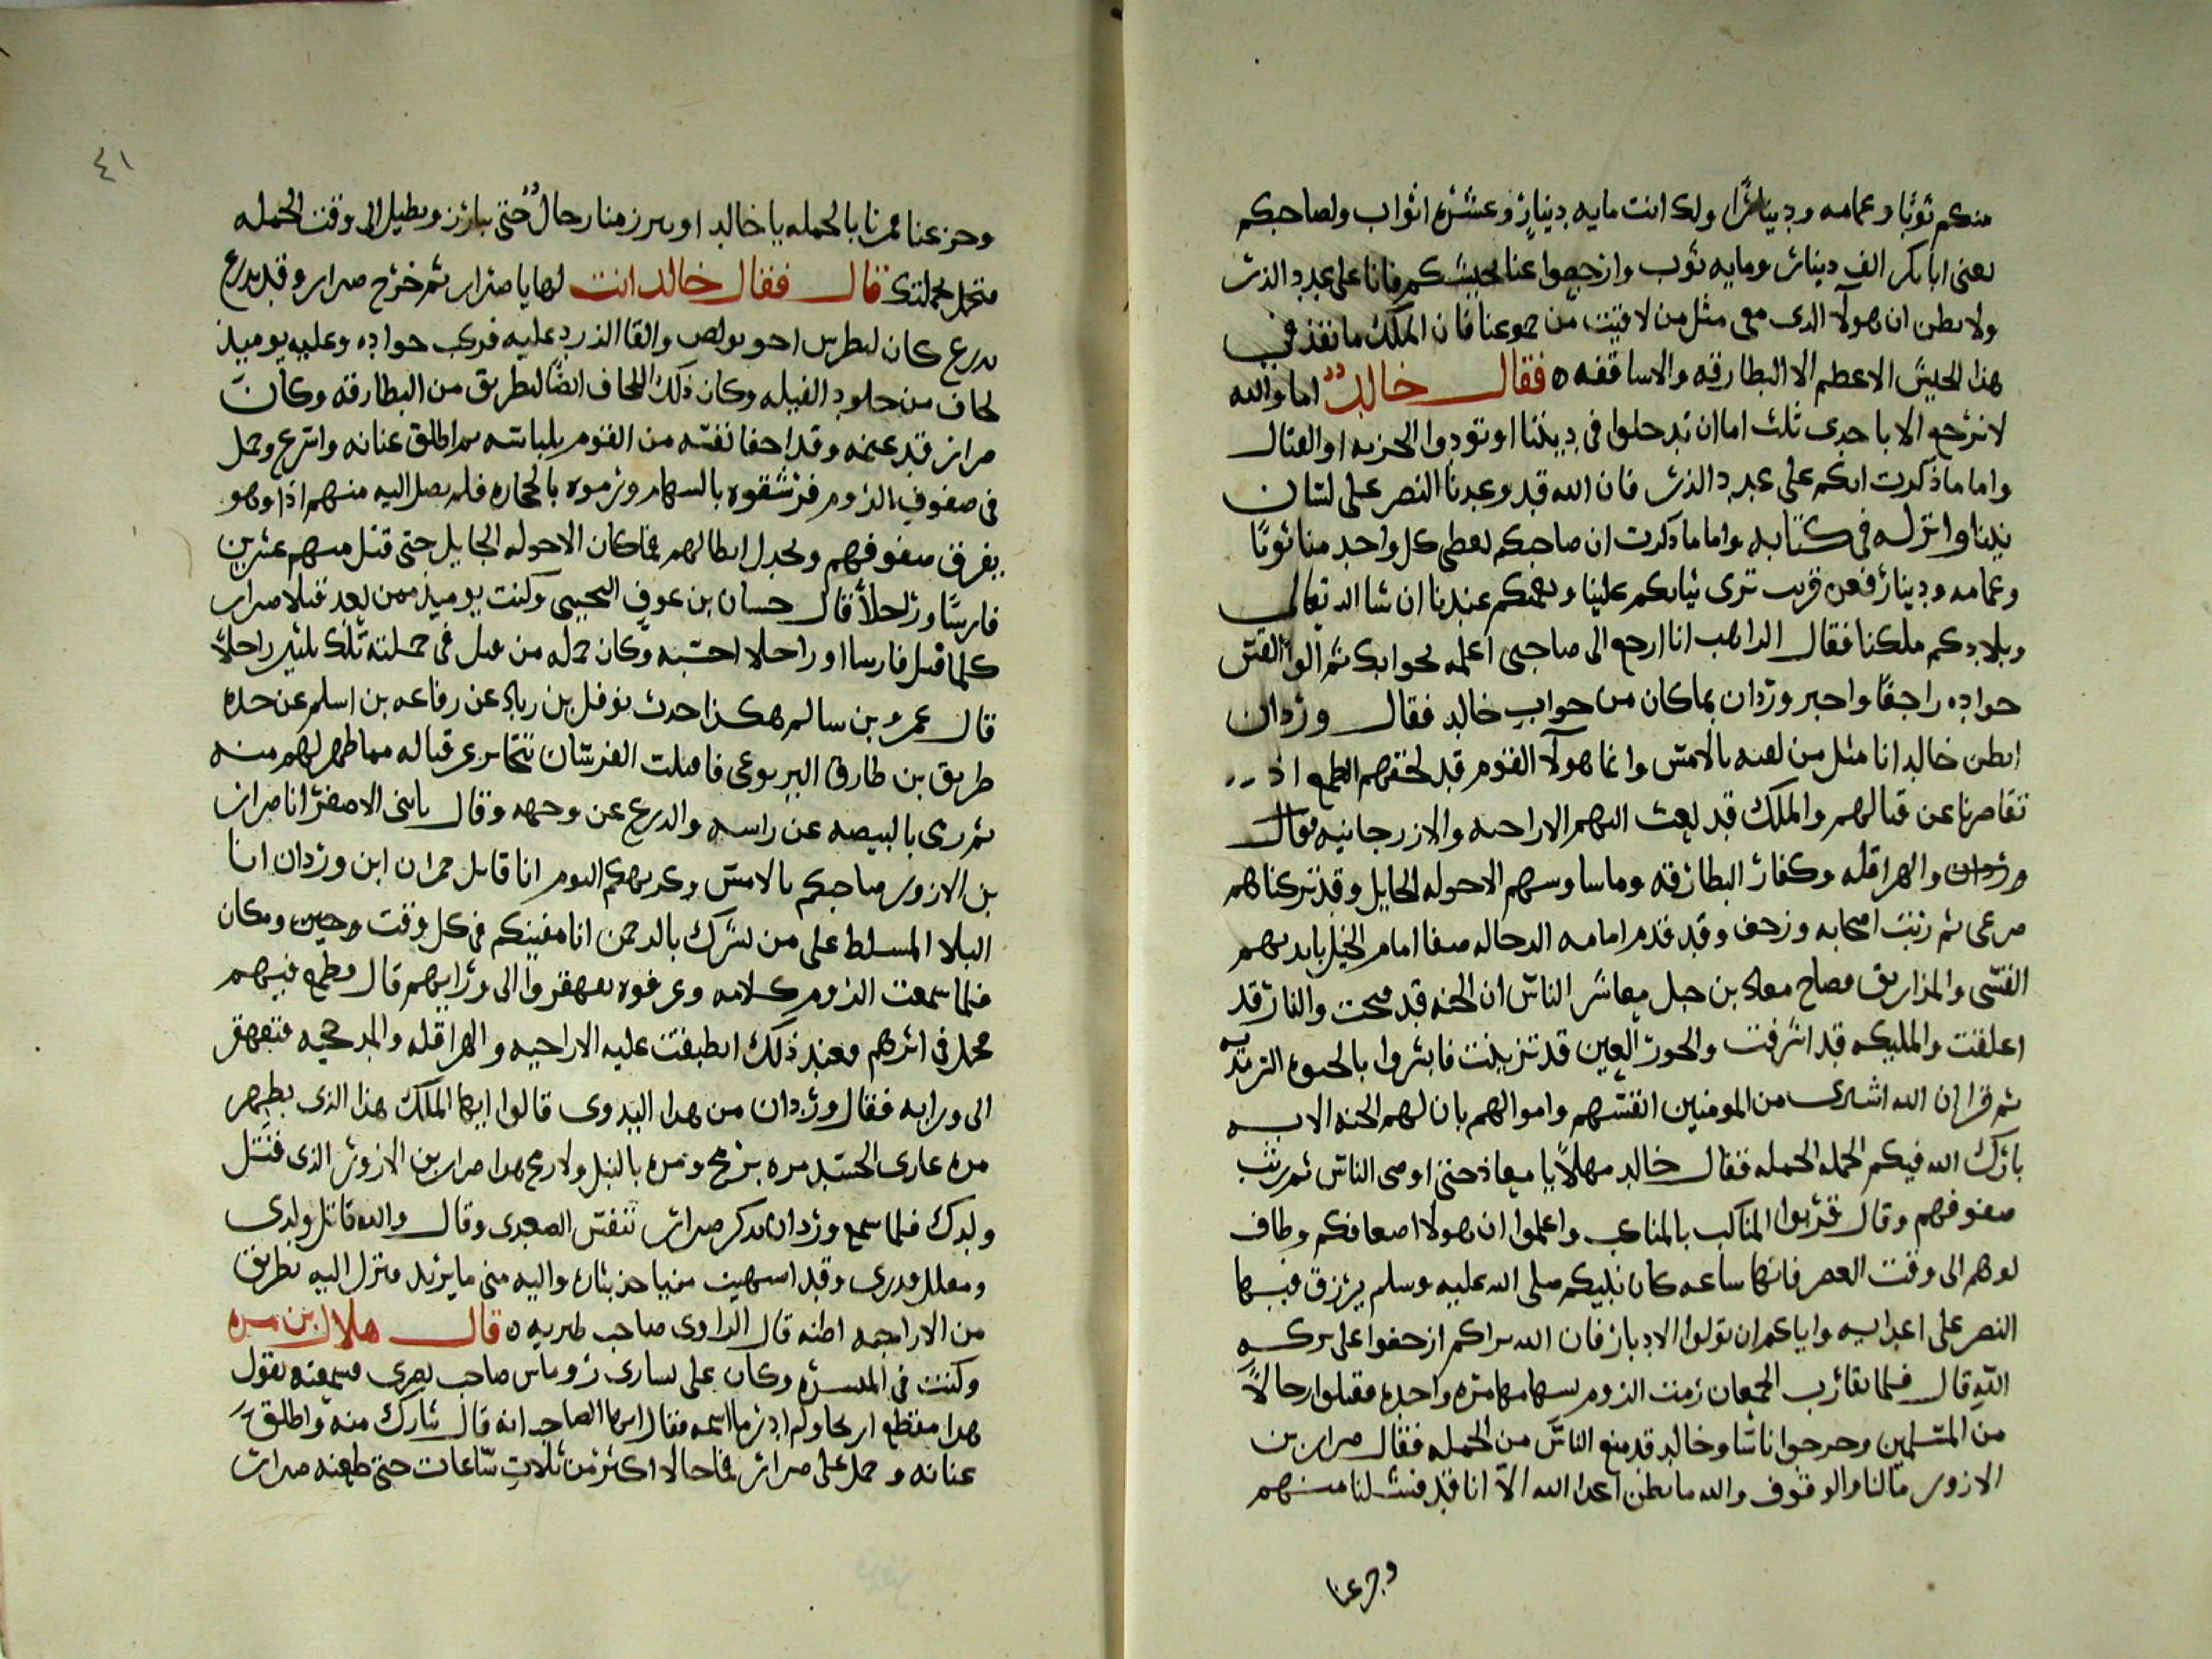 منكم ثوبا وعمامه ودينارا ولك انت مايه دينار وعشره اثواب ولصاحبكم
يعنى ابا بكر الف دينار ومايه ثوب وارجعوا عنا بجيشكم فانا على عدد الذر
ولا تظن ان هولا الذى معى مثل من لاقيت من جموعنا فان الملك ما نفذ فى
هذا الجيش الاعظم الا البطارقه والاساقفه ه فقال خالد اما والله
لا نرجع الا باحدى ثلث اما ان تدخلوا فى ديننا او تودوا الجزيه او القتال
واما ما ذكرت انكم على عدد الذر فان الله قد وعدنا النصر على لسان
نبينا وانزله فى كتابه واما ما ذكرت ان صاحبكم يعطى كل واحد منا ثوبا
وعمامه ودينار فعن قريب ترى ثيابكم علينا وعممكم عندنا ان شا الله تعالى
وبلادكم ملكنا فقال الراهب انا ارجع الى صاحبى اعلمه بجوابك ثم الوا القس
جواده راجعا واخبر وردان بما كان من جواب خالد فقال وردان
ايظن خالد انا مثل من لقيه بالامس وانما هولا القوم قد لحقهم الطمع اذ
تقاصرنا عن قتالهم والملك قد بعث اليهم الاراحيه والازرجانيه فقال
وردان والهراقله وكفار البطارقه وما بيننا وبينهم الا جوله الجايل وقد تركناهم
صرعى ثم رتب اصحابه وزحف وقد قدم امامه الرجاله صفا امام الخيل بايديهم
القسى والمزاريق فصاح معاذ بن جبل معاشر الناس ان الجنه قد فتحت والنار قد
اغلقت والمليكه قد اشرفت والحور العين قد تزينت فابشروا بالحيوه السرمديه
ثم قرا ان الله اشترى من المومنين انفسهم واموالهم بان لهم الجنه الايه
بارك الله فيكم الحمله الحمله فقال خالد مهلا يا معاذ حتى اوصى الناس ثم رتب
صفوفهم وقال قربوا المناكب بالمناكب واعلموا ان هولا اضعافكم وطاف
بوهم الى وقت العصر فانها ساعه كان نبيكم صلى الله عليه وسلم يرزق فيها
النصر على اعدايه واياكم ان تولوا الادبار فان الله يراكم ازحفوا على بركه
الله قال فلما تقارب الجمعان رمت الروم بسهامها مره واحده فقتلوا رجالا
من المسلمين وجرحوا ناسا وخالد قد منع الناس من الحمله فقال ضرار بن
الازور ما لنا والوقوف والله ما يظن اعدا الله الا انا قد فشلنا منهم
وجزعنا
٤١
وجزعنا مرنا بالحمله يا خالد او يبرز منا رجال حتى يبارز ويطيل الى وقت الحمله
فتحمل بجملتك قال فقال خالد انت لها يا ضرار ثم خرج ضرار وقد تدرع
بدرع كان لبطرس اخو بولص والقا الزرد عليه فركب جواده وعليه يوميذ
لحاف من جلود الفيله وكان ذلك اللحاف ايضا لبطريق من البطارقه وكان
ضرار قد غنمه وقد اخفا نفسه من القوم بلباسه ثم اطلق عنانه واسرع وحمل
فى صفوف الروم فرشقوه بالسهام ورموه بالحجاره فلم يصل اليه منهم اذا وهو
يفرق صفوفهم ويجدل ابطالهم فما كان الا جوله الجايل حتى قتل منهم عشرين
فارسا ورجلا قال حسان بن عوف التجيبى وكنت يوميذ ممن يعد قتلا ضرار
كلما قتل فارسا او راجلا احسبه وكان جمله من قتل فى حملته تلك ثلثين راجلا
قال عمر بن سالم هكذا حدث نوفل بن زياد عن رفاعه بن اسلم عن جده
طريق بن طارق اليربوعى فاقبلت الفرسان تتحاير عن قتاله مما ظهر لهم منه
ثم رمى بالبيضه عن راسه والدرع عن وجهه وقال يا بنى الاصفر انا ضرار
بن الازور صاحبكم بالامس وغريمكم اليوم انا قاتل حمران ابن وردان انا
البلا المسلط على من يشرك بالرحمن انا مفنيكم فى كل وقت وحين ومكان
فلما سمعت الروم كلامه وعرفوه تقهقروا الى ورايهم قال فطمع فيهم
فحمل فى اثرهم فعند ذلك انطبقت عليه الاراحيه والهراقله والمدبجيه فتقهقر
الى ورايه فقال وردان من هذا البدوى قالوا ايها الملك هذا الذى يظهر
مره عارى الجسد مره برمح ومره بالنبل ولا رمح هذا ضرار بن الازور الذى قتل
ولدك فلما سمع وردان بذكر ضرار تنفس الصعدى وقال والله قاتل ولدى
ومقلل عددى وقد اشتهيت من ياخذ بثارى واليه منى ما يريد فنزل اليه بطريق
من الاراحيه اظنه قال الراوى صاحب طبريه ه قال هلال بن مره
وكنت فى الميسره وكان على يسارى روماس صاحب بصرى فسمعته يقول
هذا مقطع اريحا ولم ادر ما اسمه فقال ايها الصاحب انه قال تبارك منه واطلق
عنانه وحمل على ضرار فما جالا اكثر من ثلاث ساعات حتى طعنه ضرار